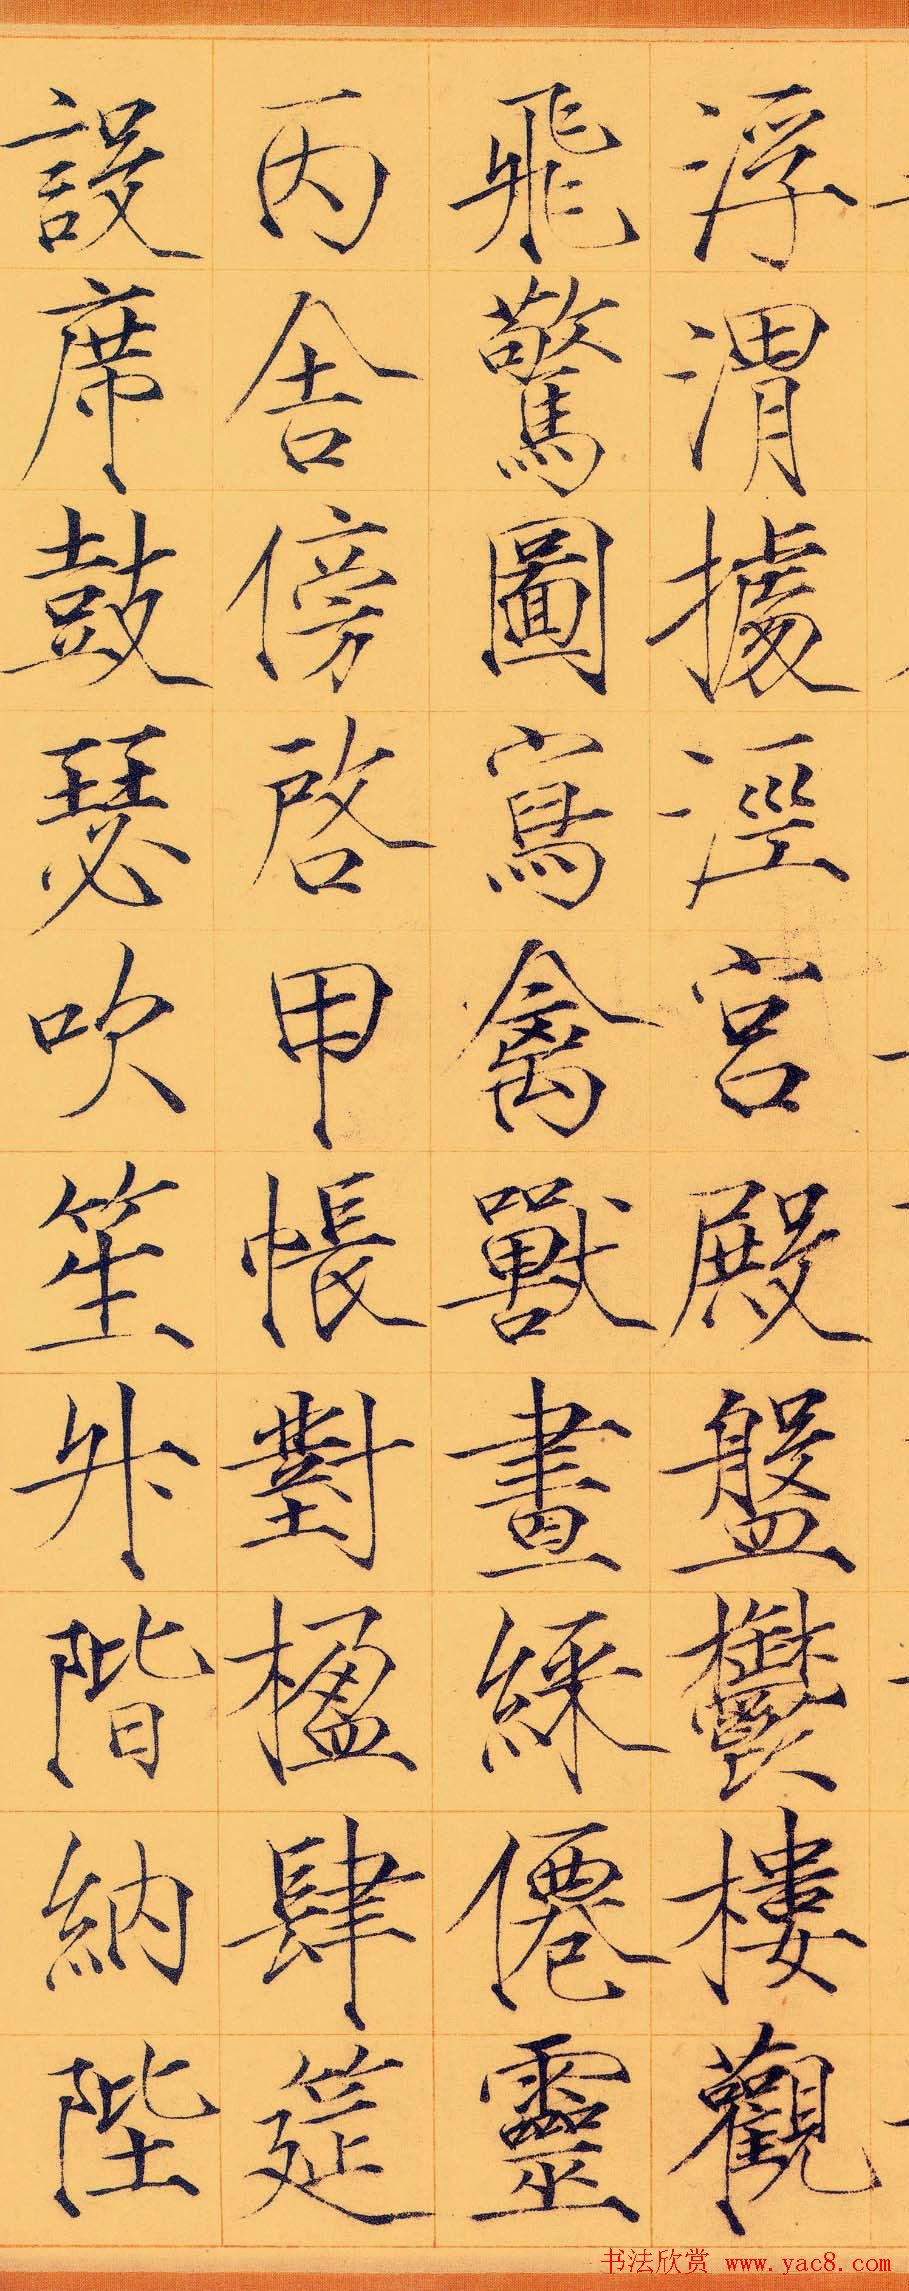 浮渭據涇宮殿盤鬱樓觀
飛驚圖寫禽獸畫綵僊靈
丙舍傍啓甲帳對楹肆筵
設席鼓瑟吹笙升階納陛
书法欣赏 www.yac8.com